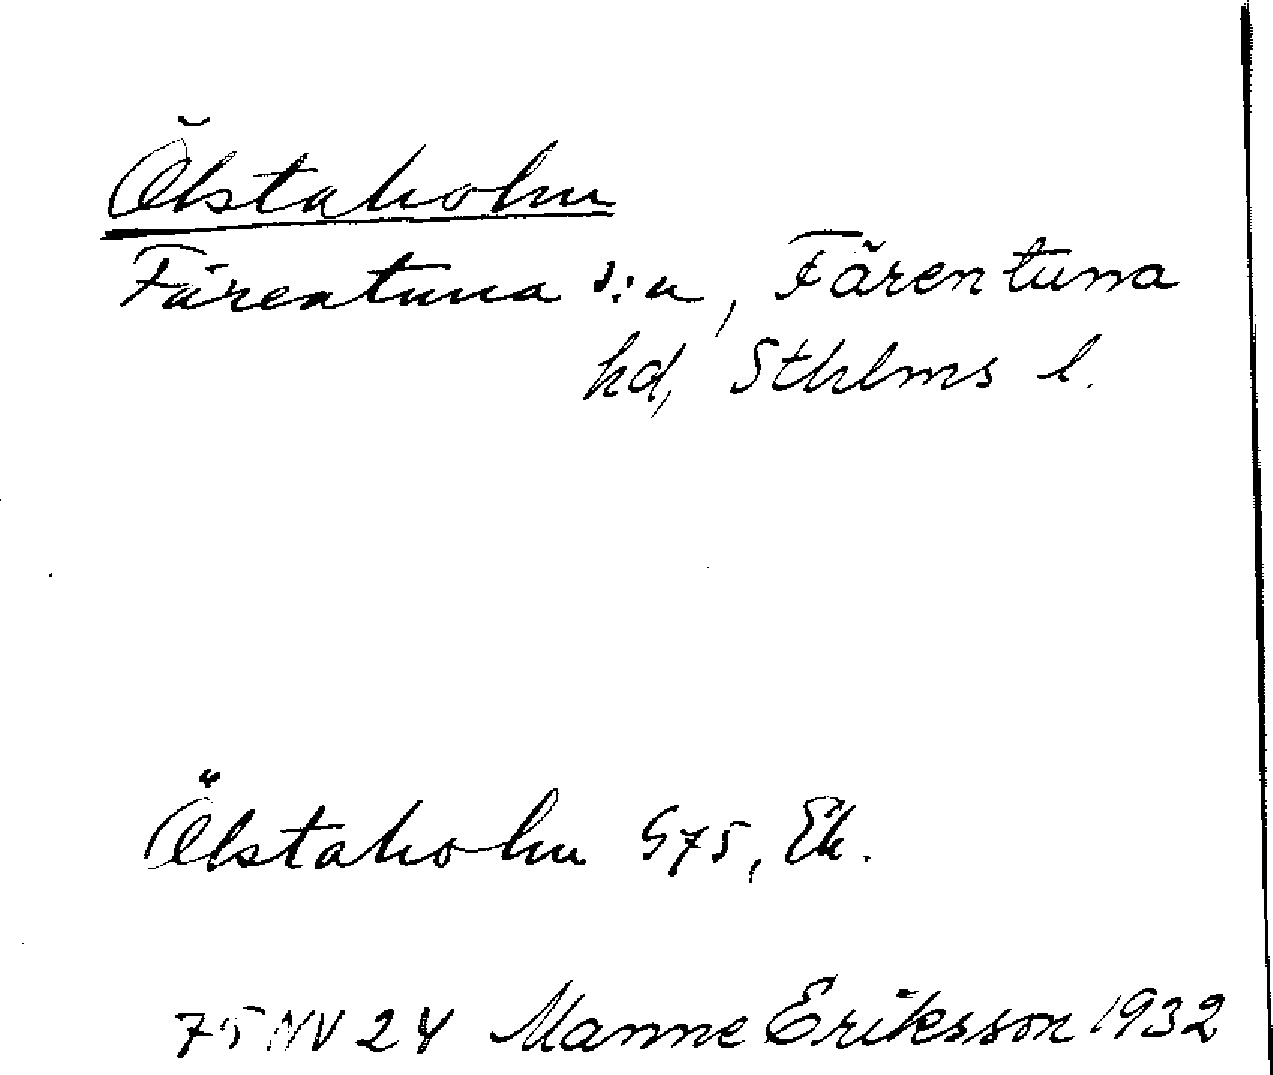 Ölstaholm
Färentuna s:n, Färentuna
hd, Sthlms l.
Ölstaholm G75, Ek.
75 NV 24 Manne Eriksson 1932